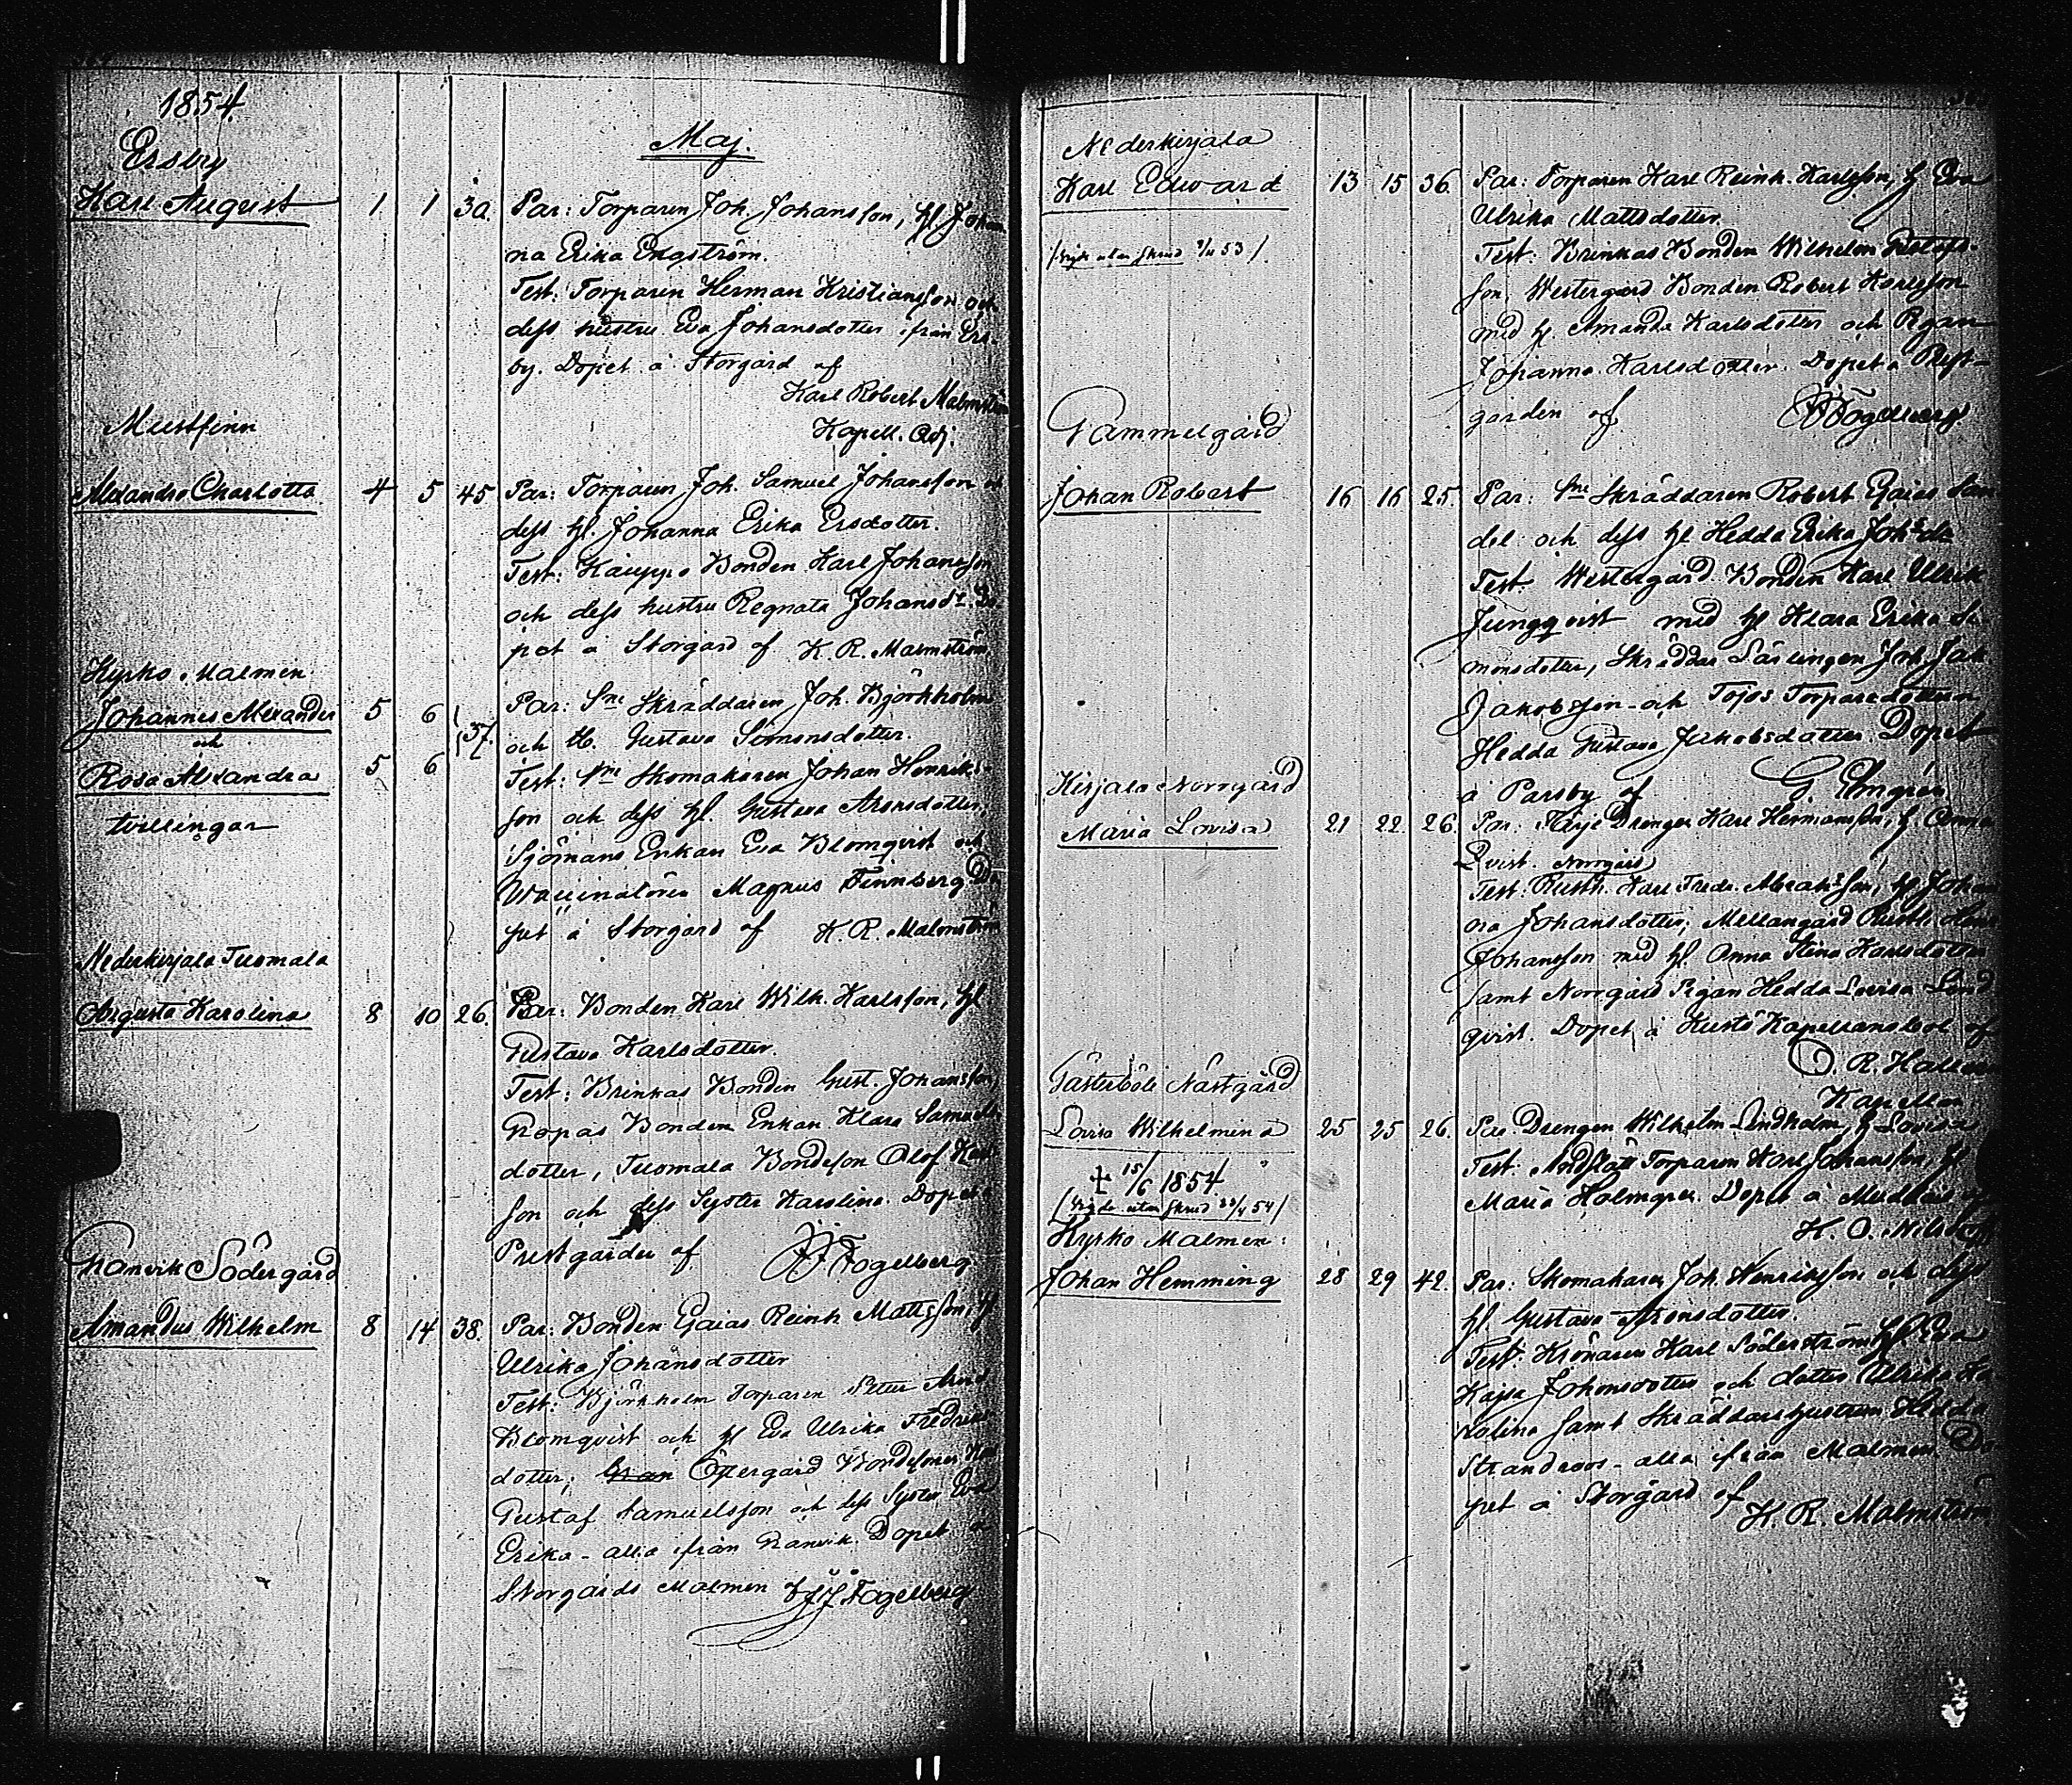 1854.
Ersby
Maj.
Karl August 1 1 30. Par: Torparen Joh. Johansson, hl Johan
na Erika Engström.
Test: Torparen Herman Kristiansson och
dess hustru Eva Johansdotter ifrån Ers-
by. Dopet å Storgård af
Karl Robert Malmström
Kapell. Adj.
Mustfinn
Alexandra Charlotta 4 5 45 Par: Torparen Joh. Samuel Johansson och
dess hl. Johanna Erika Ersdotter.
Test: Bonden Karl Johansson
och dess hustru Regnata Johansdr. Do-
pet å Storgård af K. R. Malmström
Kyrko Malmen
Johannes Alexander 5 6 37. Par: Sne Skräddaren Joh. Björkholm
och H. Gustava Simonsdotter.
och
Rosa Alexandra 5 6 Test: Sne Skomakaren Johan Henriks-
son och dess hl. Gustava Aronsdotter,
tvillingar
Sjömans Enkan Eva Blomqvist och
Vaccinatören Magnus Finnberg Do
pet å Storgård af K. R. Malmström
Nederkirjala Tuomala
Augusta Karolina 8 10 26. Par: Bonden Karl Wilh. Karlsson, hl
Gustava Karlsdotter.
Test: Brinkas Bonden Gust. Johansson,
Ropas Bonden Enkan Klara Samuels
dotter, Tuomala Bondeson Olof Karl
son och dess Syster Karolina. Dopet å
Prestgården af JJ Fogelberg
Granvik Södergård
Amandus Wilhelm 8 14 38. Par: Bonden Gaias Reinh Mattsson, hl
Ulrika Johansdotter
Test: Björkholm Torparen Petter Arvid
Blomqvist och hl Eva Ulrika Fredriks
dotter; Östergård Bondesonen
Gustaf Samuelsson och dess Syster Eva
Erika - alla ifrån Granvik. Dopet å
Storgårds Malmen af JJ Fogelberg
Nederkirjala
Karl Edward 13 15 36. Par: Torparen Karl Reinh. Karlsson, hl Eva
Ulrika Mattsdotter.
utan skrud 53/. Test: Brinkas Bonden Wilhelm Gustafs-
son, Westergård Bonden Robert Karlsson
med hl. Amanda Karlsdotter och Pigan
Johanna Karlsdotter. Dopet å Prest-
gården af JJ Fogelberg
Gammelgård
Johan Robert 16 16 25. Par: Sne Skräddaren Robert Gaias San
del och dess hl Hedda Erika Johsdr
Test. Westergård Bonden Karl Ulrik
Jungqvist med hl Klara Erika Si-
monsdotter, Skräddar Lärlingen Joh. Jak
Jakobsson och Tojos Torparedottern
Hedda Gustava Jakobsdotter. Dopet
å Parsby af G. Elmgren
Kirjala Norrgård
Maria Lovisa 21 22. 26. Par: Drengen Karl Hermansson, hl Anna
Qvist. Norrgård
Test. Rusth. Karl Fredr. Abrahsson, hl Johan
na Johansdotter; Mellangård Rusth.
Johansson med hl Anna Stina Karlsdotter
samt Norrgård Pigan Hedda Lovisa Lind
qvist. Dopet å Kustö Kapellansbol af
O. R. Hallen
Kapellan
Gästerböle Nästgård
Lovisa Wilhelmina 25 25 26. Par. Drengen Wilhelm Lindholm, hl Lovisa
Test: Torparen Karl Johansson, hl
† 15/6 1854
Maria Holmgren. Dopet å
utan skrud 54/ K. O.
Kyrko Malmen
Johan Hemming 28 29 42. Par: Skomakaren Joh. Henriksson och dess
hl Gustava Aronsdotter.
Test: Krönaren Karl Söderström hl Eva
Kajsa Johansdotter och dotter Ulrika Ka
rolina samt Skräddarehustrun Hedda
Strandroos - alla ifrån Malmen Do
pet å Storgård af
K. R. Malmström